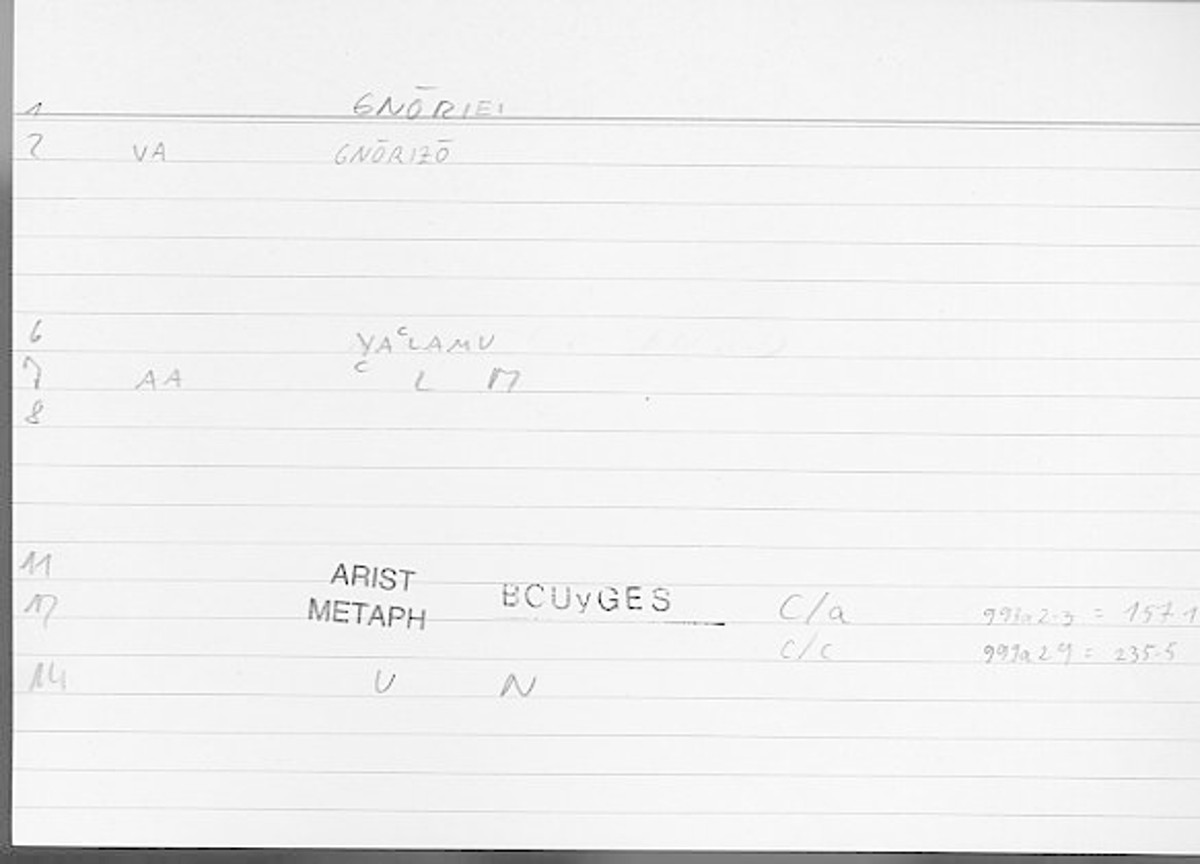 1 GNŌRIEI
2 VA GNŌRIZŌ
6 YAᶜLAMU
7 AA ᶜ L M
8
11 ARIST
17 METAPH BCUyGES C/a 993a2-3 = 157.1
C/c 999a29 = 235.5
14 U N